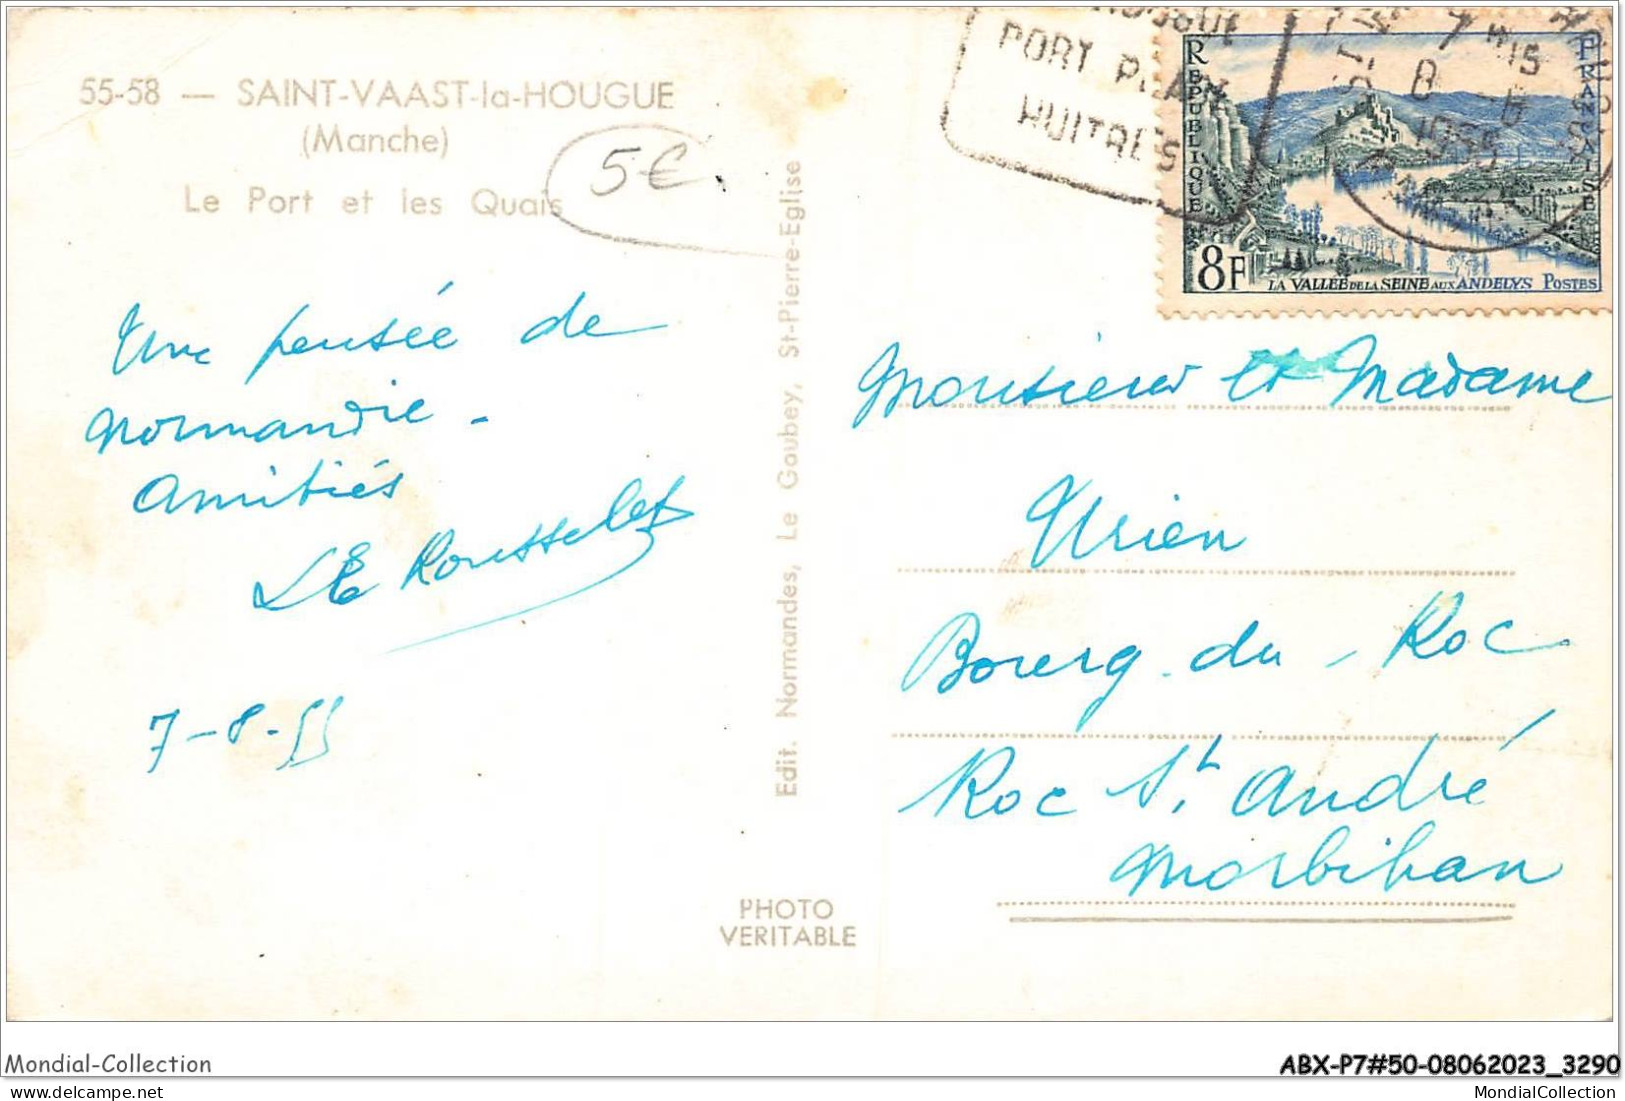 55-58 — SAINT-VAAST-la-HOUGUE
(Manche)
Le Port et les Quais
5€.
Une pensée de
Normandie -
Amitiés
LE Rousselet
7-8-55
Edit. Normandes, Le Goubey, St-Pierre-Eglise
PHOTO
VERITABLE
PORT PLAGE
HUITRES
7 H15
8 - 8
1955
MANCHE
REPUBLIQUE
FRANCAISE
8F
LA VALLEE DE LA SEINE AUX ANDELYS POSTES
Monsieur et Madame
Urien
Bourg-du-Roc
Roc St. André
Morbihan
Mondial-Collection
ABX-P7#50-08062023_3290
MondialCollection
MondialCollection